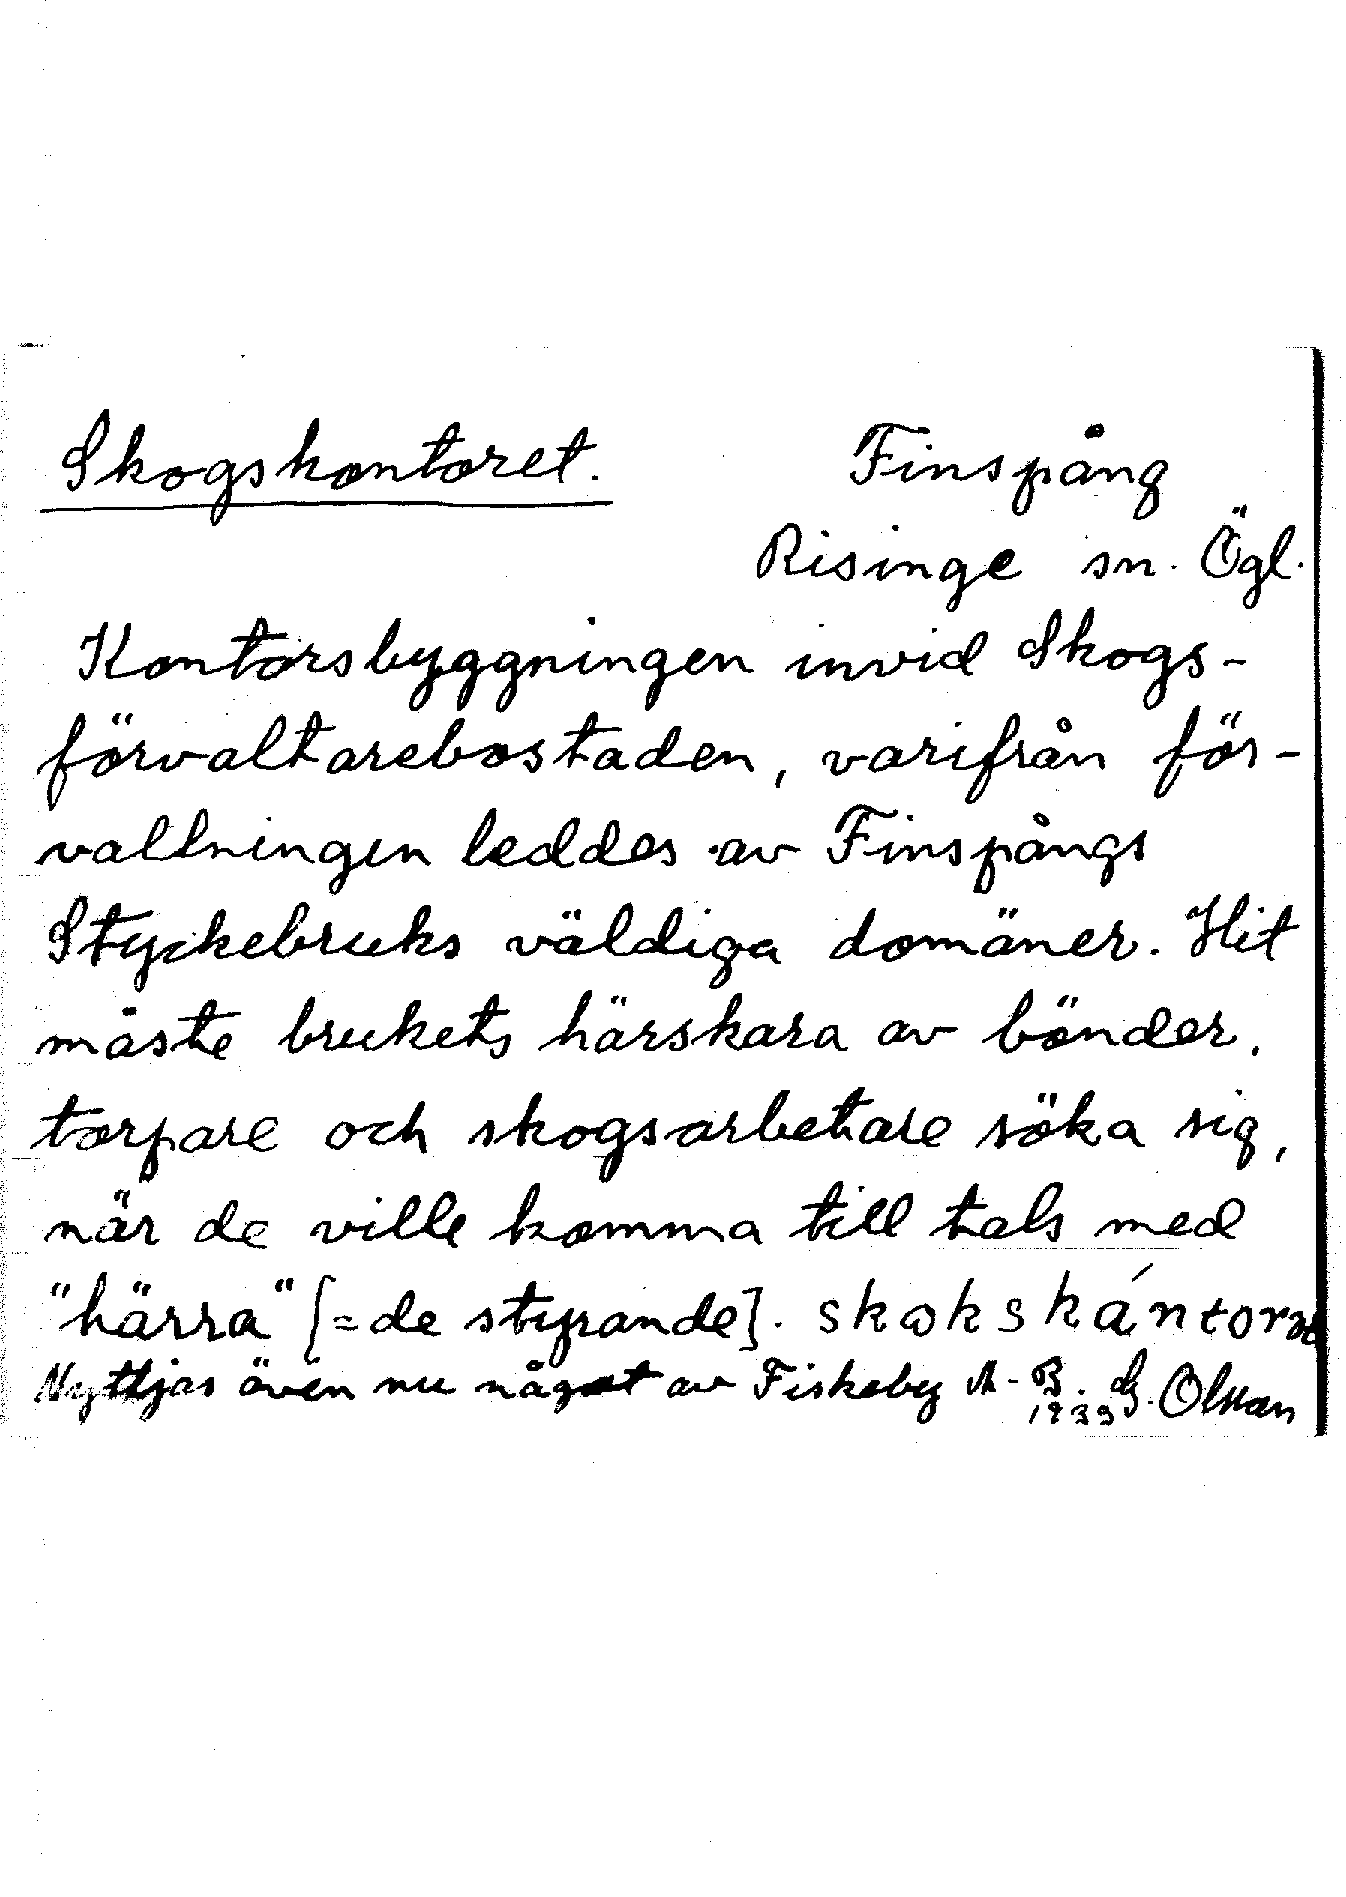 Skogskontoret. Finspång
Risinge sn. Ögl.
Kontorsbyggningen invid Skogs-
förvaltarebostaden, varifrån för-
valtningen leddes av Finspångs
Styckebruks väldiga domäner. Hit
måste brukets härskara av bönder,
torpare och skogsarbetare söka sig,
när de ville komma till tals med
"härra" [=de styrande].
Nyttjas även nu något av Fiskeby A-B. G. Olsson
1939